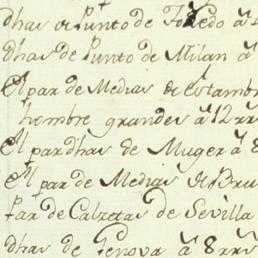 dhas de Punto de Toledo a 4
dhas de Punto de Milan a
El par de Medias de estamb
hombre grandes a 12 rrs
El par dhas de Muger a 8
el par de Medias de Bru
Par de Calzetas de Sevilla
dhas de Genova a 8 rrs